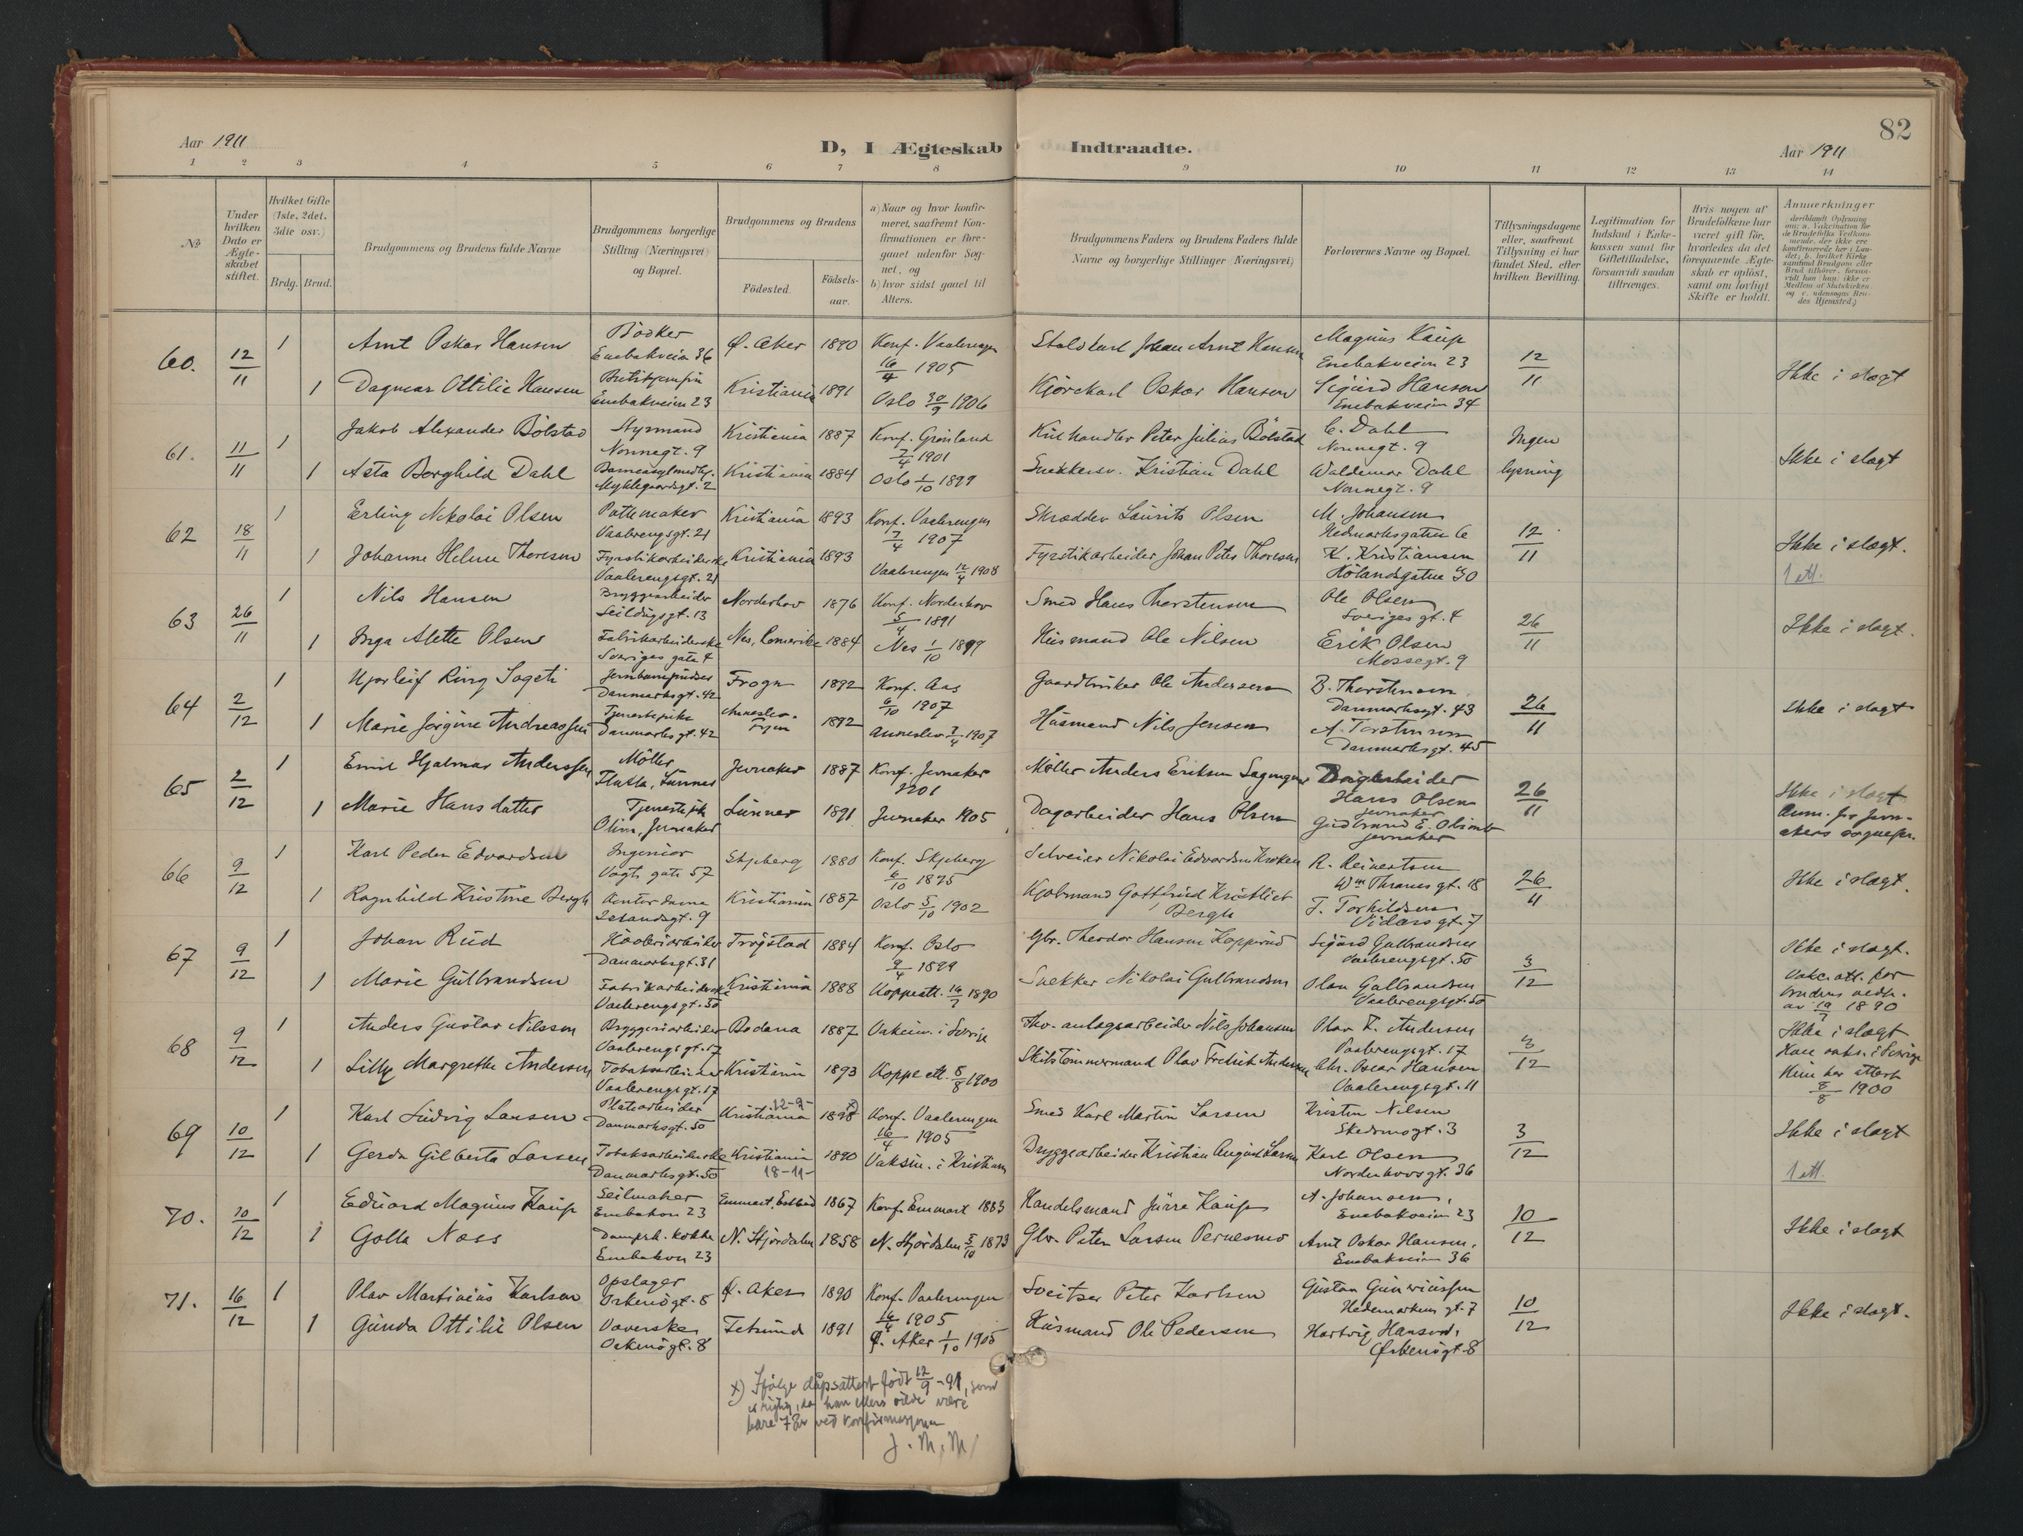 82
Aar 1911
D, I Ægteskab Indtraadte.
Aar 1911
1 2 3 4 5 6 7 8 9 10 11 12 13 14
№
Under hvilken Dato er Ægteskabet stiftet.
Hvilket Gifte (1ste, 2det, 3die osv.)
Brdg. Brud.
Brudgommens og Brudens fulde Navne
Brudgommens borgerlige Stilling (Næringsvei) og Bopæl.
Brudgommens og Brudens
Födested.
Födsels-aar.
a) Naar og hvor konfirmeret, saafremt Konfirmationen er foregaaet udenfor Sognet, og
b) hvor sidst gaaet til Alters.
Brudgommens Faders og Brudens Faders fulde Navne og borgerlige Stillinger (Næringsvei)
Forlovernes Navne og Bopæl.
Tillysningsdagene eller, saafremt Tillysning ei har fundet Sted, efter hvilken Bevilling.
Legitimation for Indskud i Enkekassen samt for Giftetilladelse, forsaavidt saadan tiltrænges.
Hvis nogen af Brudefolkene har været gift för, hvorledes da det foregaaende Ægteskab er oplöst, samt om lovligt Skifte er holdt.
Anmerkninger
60. 12/11 1 Arnt Oskar Hansen Bödker Enebakveien 36 Ö. Aker 1890 Konf. Vaalerengen 16/4 1905 Staldkarl Johan Arnt Hansen Magnus Kaup Enebakveien 23 12/11 Ikke i slægt
1 Dagmar Ottilie Hansen Enebakveien 23 Kristiania 1891 Oslo 30/9 1906 Kjörekarl Oskar Hansen Sigurd Hansen Enebakveien 34
61. 11/11 1 Jakob Alexander Bölstad Styrmand Nonnegt. 9 Kristiania 1887 Konf. Grönland 7/4 1901 Kulhandler Peter Julius Bölstad C. Dahl Nonnegt. 9 Ingen lysning Ikke i slægt
1 Asta Borghild Dahl Myklegaardsgt. 2 Kristiania 1884 Oslo 1/10 1899 Snekkersv. Kristian Dahl Waldemar Dahl Nonnegt. 9
62 18/11 1 Erling Nikolai Olsen Vaalerengsgt. 21 Kristiania 1893 Konf. Vaalerengen 7/4 1907 Skrædder Laurits Olsen M. Johansen Hedmarksgaten 6 12/11 Ikke i slægt.
1 Johanne Helene Thoresen Fyrstikarbeiderske Vaalerengsgt. 21 Kristiania 1893 Vaalerengen 12/4 1908 Fyrstikarbeider Johan Peter Thoresen K. Kristiansen Hölandsgaten 30 1 att.
63 26/11 1 Nils Hansen Bryggearbeider Seildugsgt. 13 Norderhov 1876 Konf. Norderhov 5/4 1891 Smed Hans Thorstensen Ole Olsen Sverigesgt. 4 26/11 Ikke i slægt.
1 Inga Alette Olsen Fabrikarbeiderske Sveriges gate 4 Nes, Romerike 1884 Nes 1/10 1899 Husmand Ole Nilsen Erik Olsen Mossegt. 9
64 2/12 1 Hjorleif Ring Sageti Jernbanepudser Danmarksgt. 42 Frogn 1892 Konf. Aas 6/10 1907 Gaardbruker Ole Andersen B. Thorstensen Danmarksgt. 43 26/11 Ikke i slægt
1 Marie Jörgine Andreassen Tjenestepike Danmarksgt. 42 1892 7/4 1907 Husmand Nils Jensen A. Torstensen Danmarksgt. 45
65 2/12 1 Emil Hjalmar Anderssen Möller Lunner Jevnaker 1887 Konf. Jevnaker 1901 Möller Anders Eriksen Hans Olsen Jevnaker 26/11 Ikke i slægt
1 Marie Hansdatter Tjenestepik Jevnaker Lunner 1891 Jevnaker 1905 Dagarbeider Hans Olsen Gudbrand E. Jevnaker
66 9/12 1 Karl Peder Edvardsen Ingeniör Vogts gate 57 Skjeberg 1880 Konf. Skjeberg 6/10 1895 Nikolai Edvardsen R. Reinertsen Wm Thranesgt. 18 26/11 Ikke i slægt.
1 Ragnhild Kristine Bergh Kontordame Islandsgt. 9 Kristiania 1887 Oslo 5/10 1902 Kjöbmand Gottfried Kristlieb Bergh T. Torkildsen Vidarsgt. 7
67 9/12 1 Johan Rud Danmarksgt. 31 Trögstad 1884 Konf. Oslo 9/4 1899 Gbr. Theodor Hansen Kopperud Sigurd Gulbrandsen Vaalerengsgt. 50 3/12 Ikke i slægt.
1 Marie Gulbrandsen Fabrikarbeiderske Vaalerengsgt. 50 Kristiania 1888 Koppeatt. 1890 Snekker Nikolai Gulbrandsen Olav Gulbrandsen Vaalerengsgt. 50 Vakc. att. for brudens vedk. av 1890
68 9/12 1 Anders Gustav Nilssen Bryggeriarbeider Vaalerengsgt. 17 Bodana 1887 Vakcin. i Sverige Nils Johansen Olav F. Andersen Vaalerengsgt. 17 3/12 Ikke i slægt
1 Lilly Margrethe Andersen Tobaksarbeider Vaalerengsgt. 17 Kristiania 1893 Koppeatt. 8/8 1900 Skibstömmermand Olav Fredrik Andersen Chr. Oscar Hansen Vaalerengsgt. 11 Han vaks. i Sverige Hun har attest 8/8 1900
69 10/12 1 Karl Ludvig Larsen Danmarksgt. 50 Kristiania 12-9- 1898 x) Konf. Vaalerengen 16/4 1905 Smed Karl Martin Larsen Kristen Nilsen Skedsmogt. 3 3/12 Ikke i slægt
1 Gerda Gilberta Larsen Tobaksarbeiderske Danmarksgt. 50 Kristiania 18-11- 1890 Vaksin. i Kristiania Bryggearbeider Kristian August Larsen Karl Olsen Norderhovsgt. 36 1 att.
70. 10/12 1 Eduard Magnus Kaup Seilmaker Enebakvn 23 Emmast, Estland 1867 Konf. Emmast 1883 Handelsmand Jürre Kaup A. Johansen, Enebakveien 23 10/12 Ikke i slægt
1 Golla Næss Dampsk. kokke Enebakvn 23 N. Stjördalen 1858 N. Stjördalen 5/10 1873 Gbr. Peter Larsen Arnt Oskar Hansen, Enebakveien 36
71. 16/12 1 Olav Martinius Karlsen Opslager Örkenögt. 8 Ö. Aker 1890 Konf. Vaalerengen 16/4 1905 Sveitser Peter Karlsen Gustav Guneriussen Hedemarkens gt. 7 10/12 Ikke i slægt.
1 Gunda Ottilie Olsen Væverske Örkenögt. 8 Fetsund 1891 Ö. Aker 1/10 1905 Husmand Ole Pedersen Hartvig Hansen, Örkenögt. 8
x) Ifölge dåpsattest född 12/9 -91, som
er riktig, da han ellers vilde være
bare 7 år ved konfirmasjonen
J. M. M